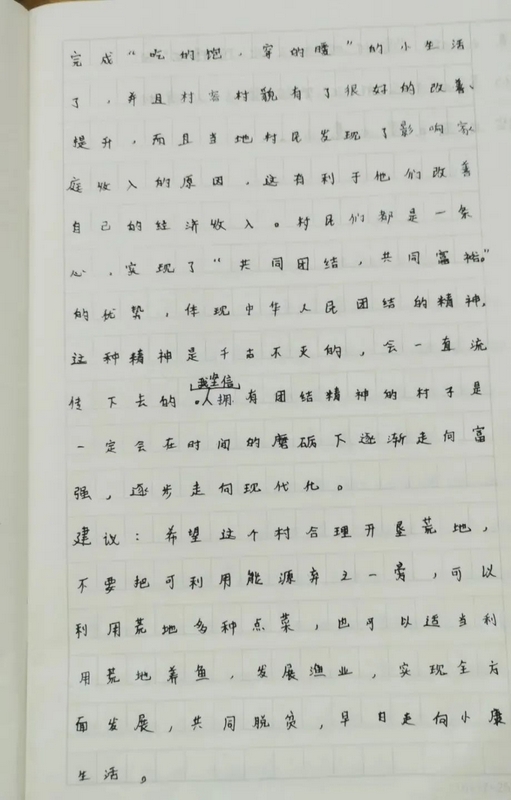 完成“吃的饱，穿的暖”的小生活
了，并且村容村貌有了很好的改善、
提升，而且当地村民发现了影响家
庭收入的原因，这有利于他们改善
自己的经济收入。村民们都是一条
心，实现了“共同团结，共同富裕。”
的优势，体现中华人民团结的精神。
这种精神是千古不灭的，会一直流
我坚信
传下去的。人拥有团结精神的村子是
一定会在时间的磨砺下逐渐走向富
强，逐步走向现代化。
建议：希望这个村合理开垦荒地，
不要把可利用能源弃之一旁，可以
利用荒地多种点菜，也可以适当利
用荒地养鱼，发展渔业，实现全方
面发展，共同脱贫，早日走向小康
生活。